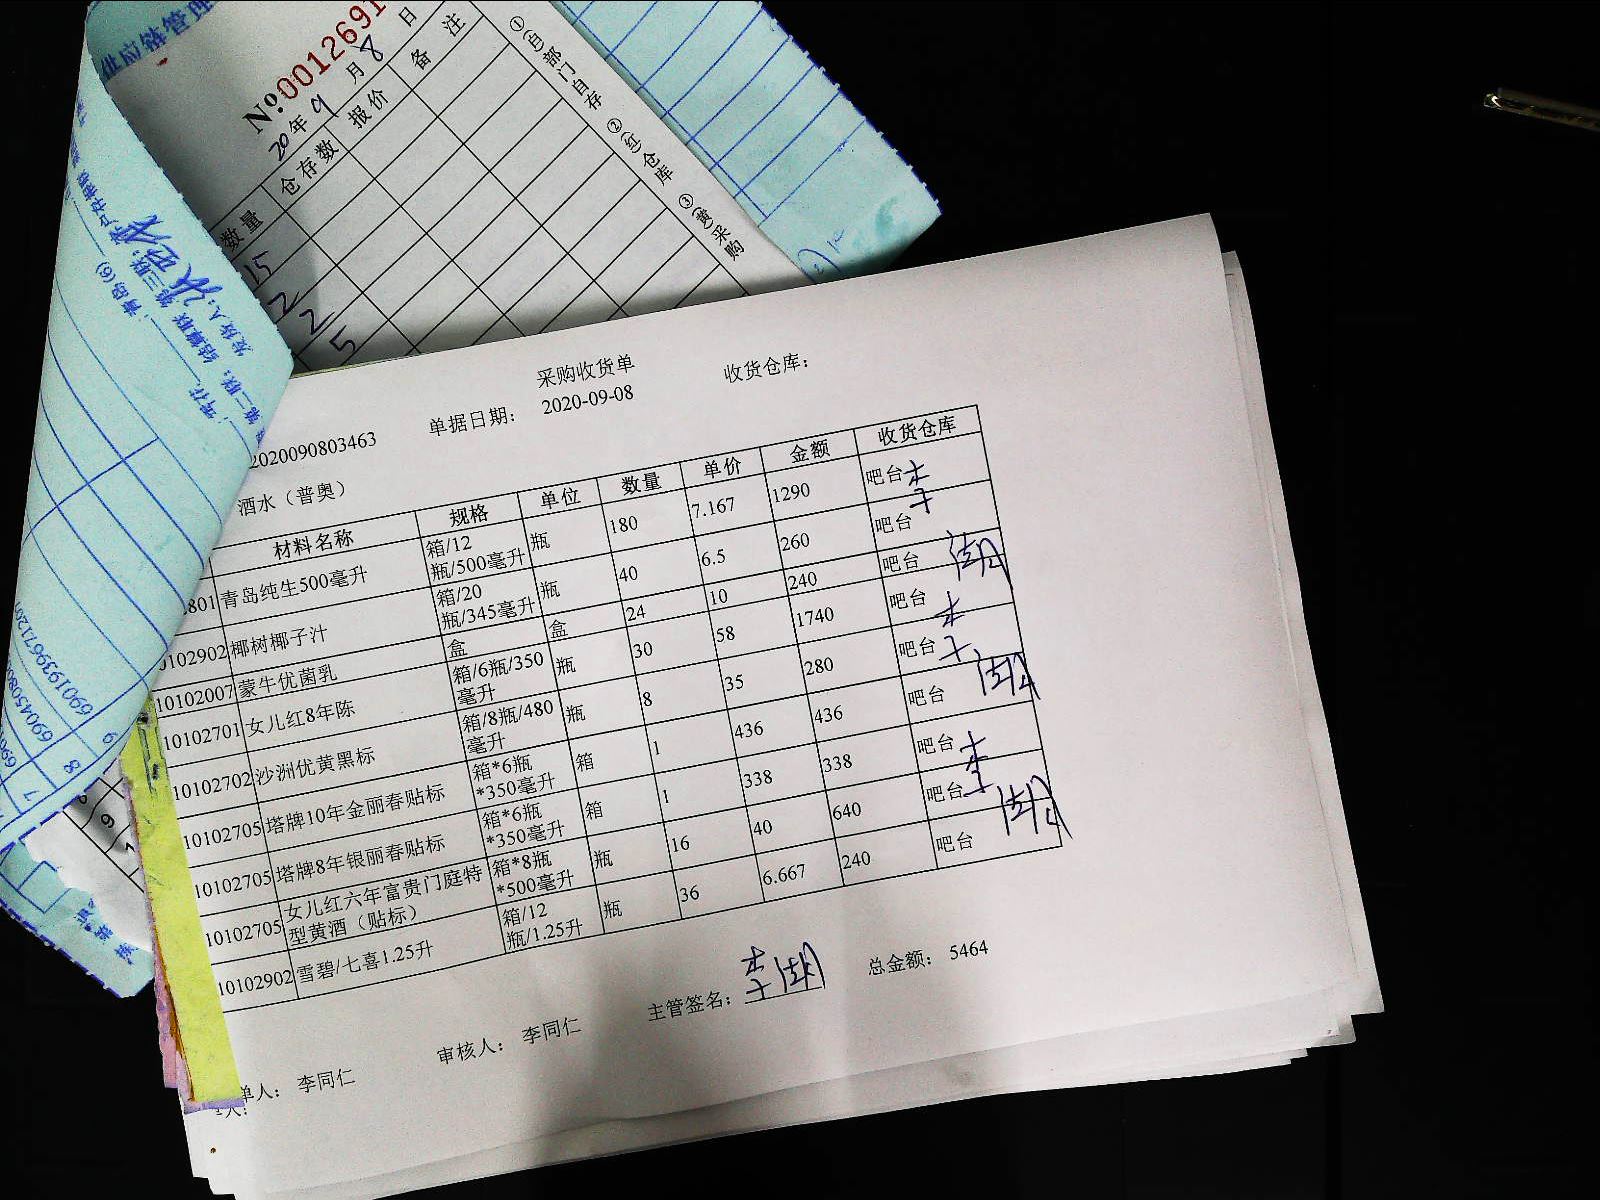 供应链管理
No:0012691
20年9月8日
数量 仓存数 报价 备注
15
2
2
5
①(白)部门自存 ②(红)仓库 ③(黄)采购
青岛(6)
发货人:
采购收货单
2020090803463 单据日期: 2020-09-08 收货仓库:
酒水（普奥）
材料名称 规格 单位 数量 单价 金额 收货仓库
801 青岛纯生500毫升 箱/12瓶/500毫升 瓶 180 7.167 1290 吧台
0102902 椰树椰子汁 箱/20瓶/345毫升 瓶 40 6.5 260 吧台
10102007 蒙牛优菌乳 盒 盒 24 10 240 吧台
10102701 女儿红8年陈 箱/6瓶/350毫升 瓶 30 58 1740 吧台
10102702 沙洲优黄黑标 箱/8瓶/480毫升 瓶 8 35 280 吧台
10102705 塔牌10年金丽春贴标 箱*6瓶*350毫升 箱 1 436 436 吧台
10102705 塔牌8年银丽春贴标 箱*6瓶*350毫升 箱 1 338 338 吧台
10102705 女儿红六年富贵门庭特型黄酒（贴标） 箱*8瓶*500毫升 瓶 16 40 640 吧台
10102902 雪碧/七喜1.25升 箱/12瓶/1.25升 瓶 36 6.667 240 吧台
李湖
李湖
李湖
单人: 李同仁 审核人: 李同仁 主管签名: 李湖 总金额: 5464
人: